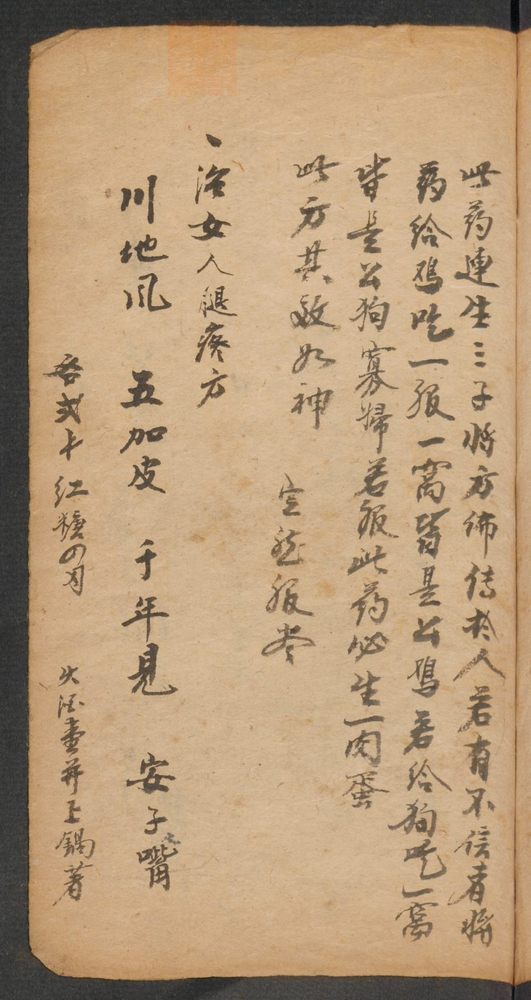 此药連生三子將方佈传於人若有不信者將
药给鸡吃一服一窩皆是公鸡若给狗吃一窩
皆是公狗寡婦若服此药必生一肉蛋
此方其效如神
服
、治女人腿疼方
川地风 五加皮 千年見 安子嘴
各弍十 红糖